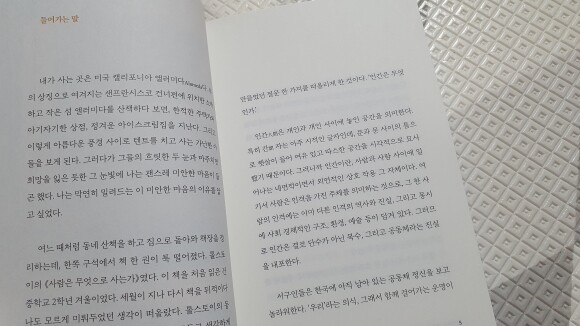 들어가는 말
내가 사는 곳은 미국 캘리포니아 앨러미다Alameda다.
의 상징으로 여겨지는 샌프란시스코 건너편에 위치한
하고 작은 섬 앨러미다를 산책하다 보면, 한적한 주택가
아기자기한 상점, 정겨운 아이스크림집을 지난다. 그리고
이렇게 아름다운 풍경 사이로 텐트를 치고 사는 가난한
들을 보게 된다. 그러다가 그들의 흐릿한 두 눈과 마주
희망을 잃은 듯한 그 눈빛에 나는 괜스레 미안한 마음이
곤 했다. 나는 막연히 밀려드는 이 미안한 마음의 이유를
고 싶었다.
여느 때처럼 동네 산책을 하고 집으로 돌아와 책장을
리하는데, 왼쪽 구석에서 책 한 권이 툭 떨어졌다. 톨스토
이의 《사람은 무엇으로 사는가》였다. 이 책을 처음 읽은 건
중학교 2학년 겨울이었다. 세월이 지나 다시 책을 뒤적이다
나도 모르게 미뤄두었던 생각이 떠올랐다. 톨스토이의
생각하게
만들었던 질문 한 가지를 떠올리게 한 것이다. '인간은 무엇
인가.'
인간人間은 개인과 개인 사이에 놓인 공간을 의미한다.
특히 간間 자는 아주 시적인 글자인데, 문과 문 사이의 틈으
로 햇살이 들어 여유 있고 따스한 공간을 시각적으로 묘사
했기 때문이다. 그러니까 인간이란, 사람과 사람 사이에 일
어나는 내면적이면서 외면적인 상호 작용 그 자체이다. 여
기서 사람은 인격을 가진 주체를 의미하는 것으로, 그 한 사
람의 인격에는 이미 다른 인격의 역사와 진실, 그리고 동시
에 사회 경제적인 구조, 환경, 예술 등이 담겨 있다. 그러므
로 인간은 결코 단수가 아닌 복수, 그리고 공동체라는 진실
을 내포한다.
서구인들은 한국에 아직 남아 있는 공동체 정신을 보고
놀라워한다. '우리'라는 의식, 그래서 함께 걸어가는 운명이
5